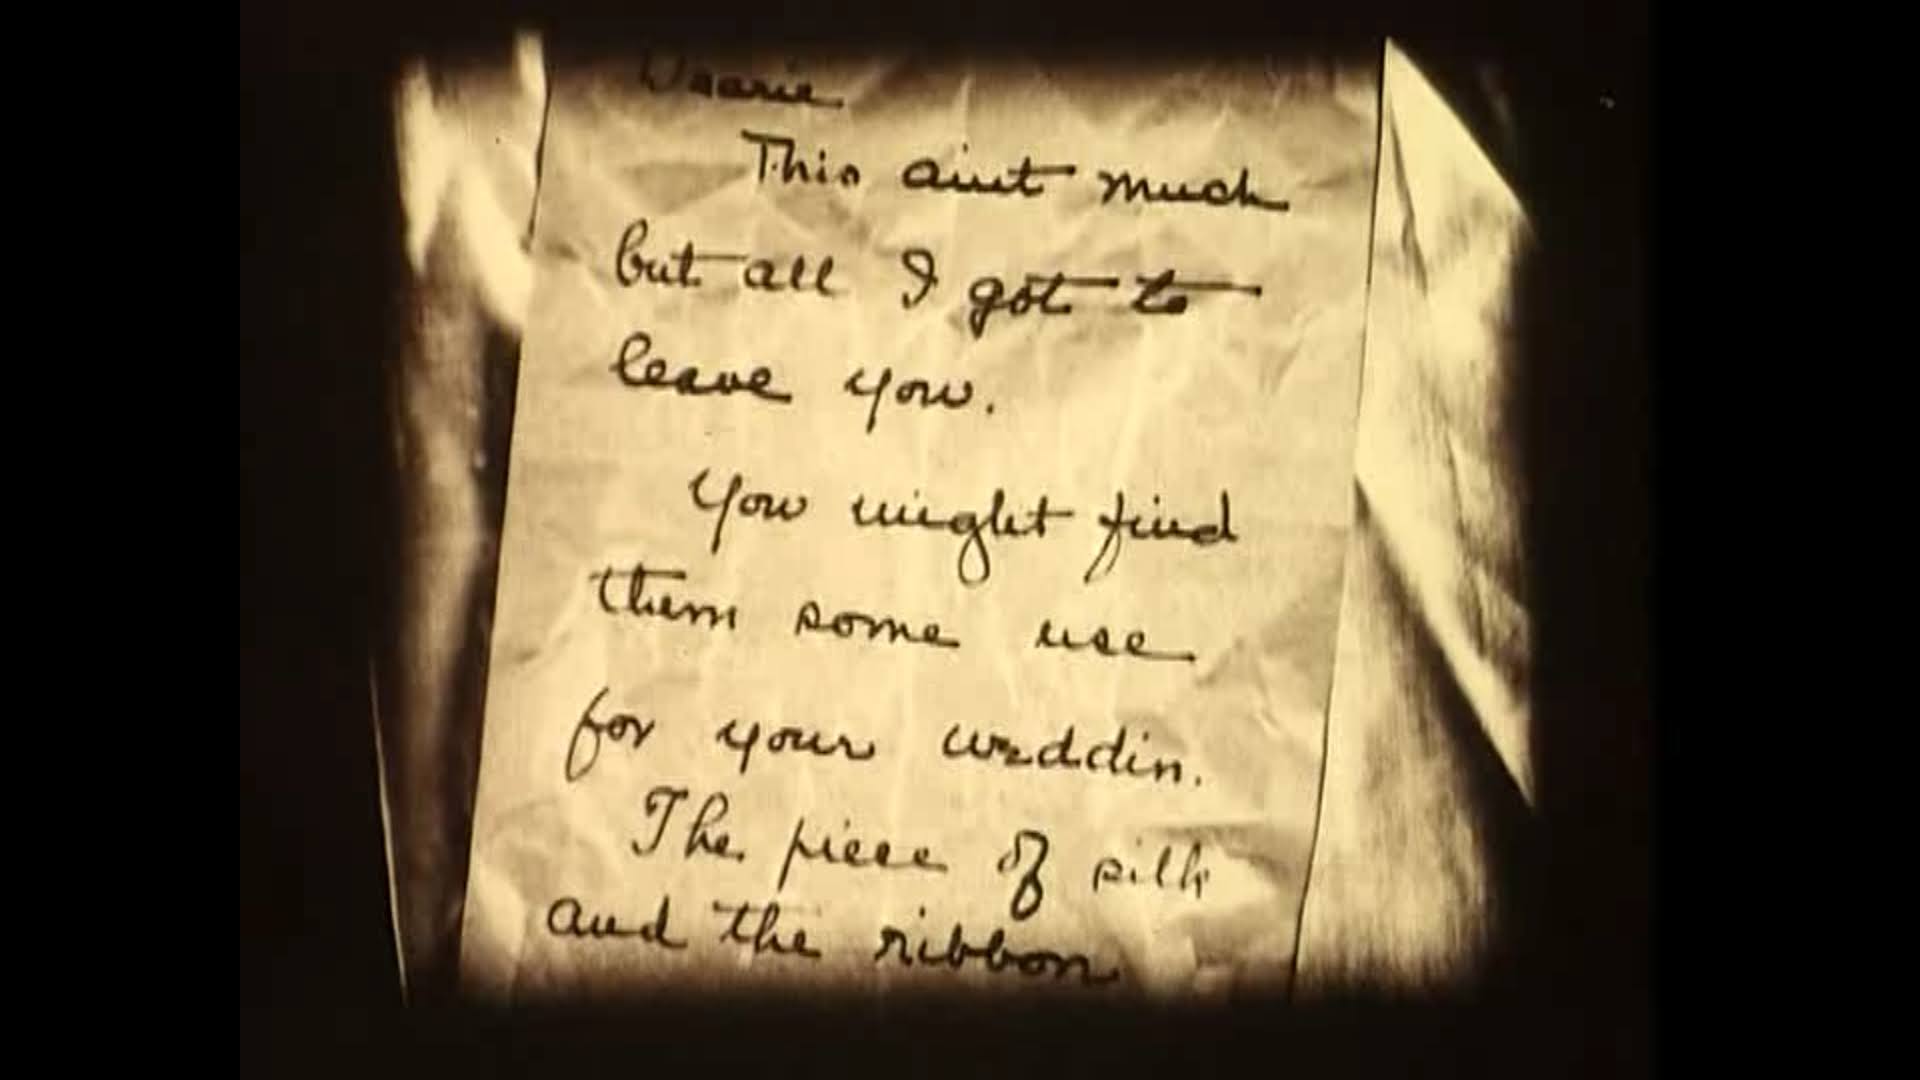 Dearie
This aint much
but all I got to
leave you.
You might find
them some use
for your weddin.
The piece of silk
and the ribbon